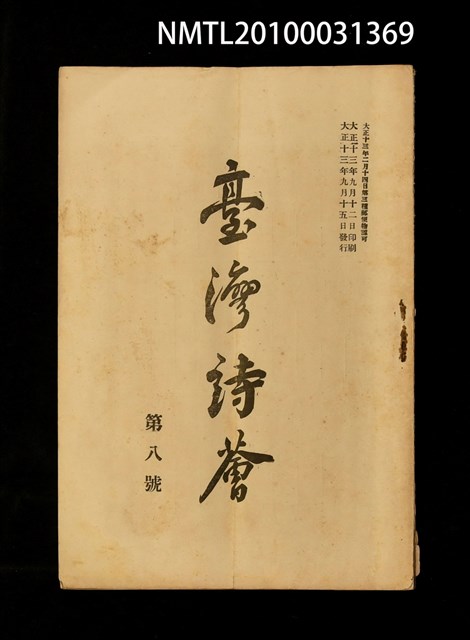 NMTL20100031369
大正十三年二月十四日第三種郵便物認可
大正十三年九月十二日印刷
大正十三年九月十五日發行
臺灣詩薈
第八號